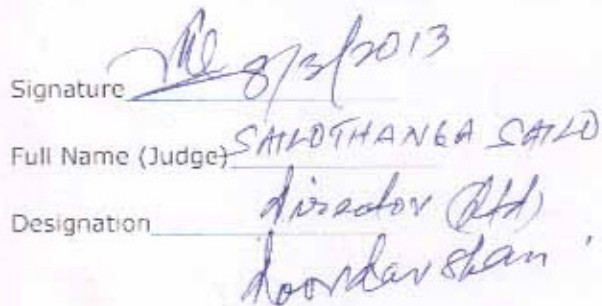 Signature 8/3/2013
Full Name (Judge) SAILOTHANGA SAILO
Designation Director (Rtd)
Doordarshan